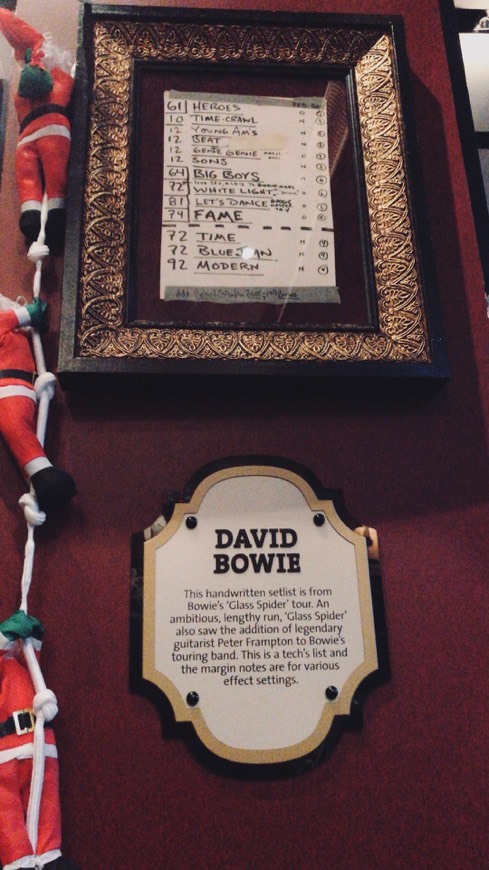 61 HEROES
10 TIME CRAWL
12 YOUNG AM'S
12 BEAT
12 GENIE GENIE
12 SONS
64 BIG BOYS
72 WHITE LIGHT
81 LET'S DANCE
74 FAME
72 TIME
72 BLUE JEAN
92 MODERN
DAVID
BOWIE
This handwritten setlist is from
Bowie's 'Glass Spider' tour. An
ambitious, lengthy run, 'Glass Spider'
also saw the addition of legendary
guitarist Peter Frampton to Bowie's
touring band. This is a tech's list and
the margin notes are for various
effect settings.